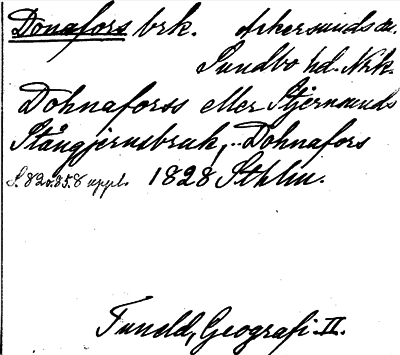 Donafors brk. Askersunds sn.
Sundbo hd. Nrk.
Dohnaforss eller Stjernsunds
Stångjernsbruk, Dohnafors
S. 82o.85. 8 uppl. 1828 Sthlm.
Tuneld, Geografi II.